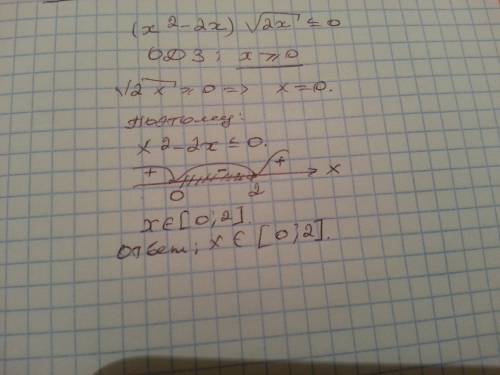 (x² - 2x) √2x ≤ 0
ОДЗ; x ≥ 0
√2x ≥ 0 => x = 0.
поэтому:
x² - 2x ≤ 0.
+ - + x
0 2
x ∈ [0; 2].
ответ; x ∈ [0; 2].